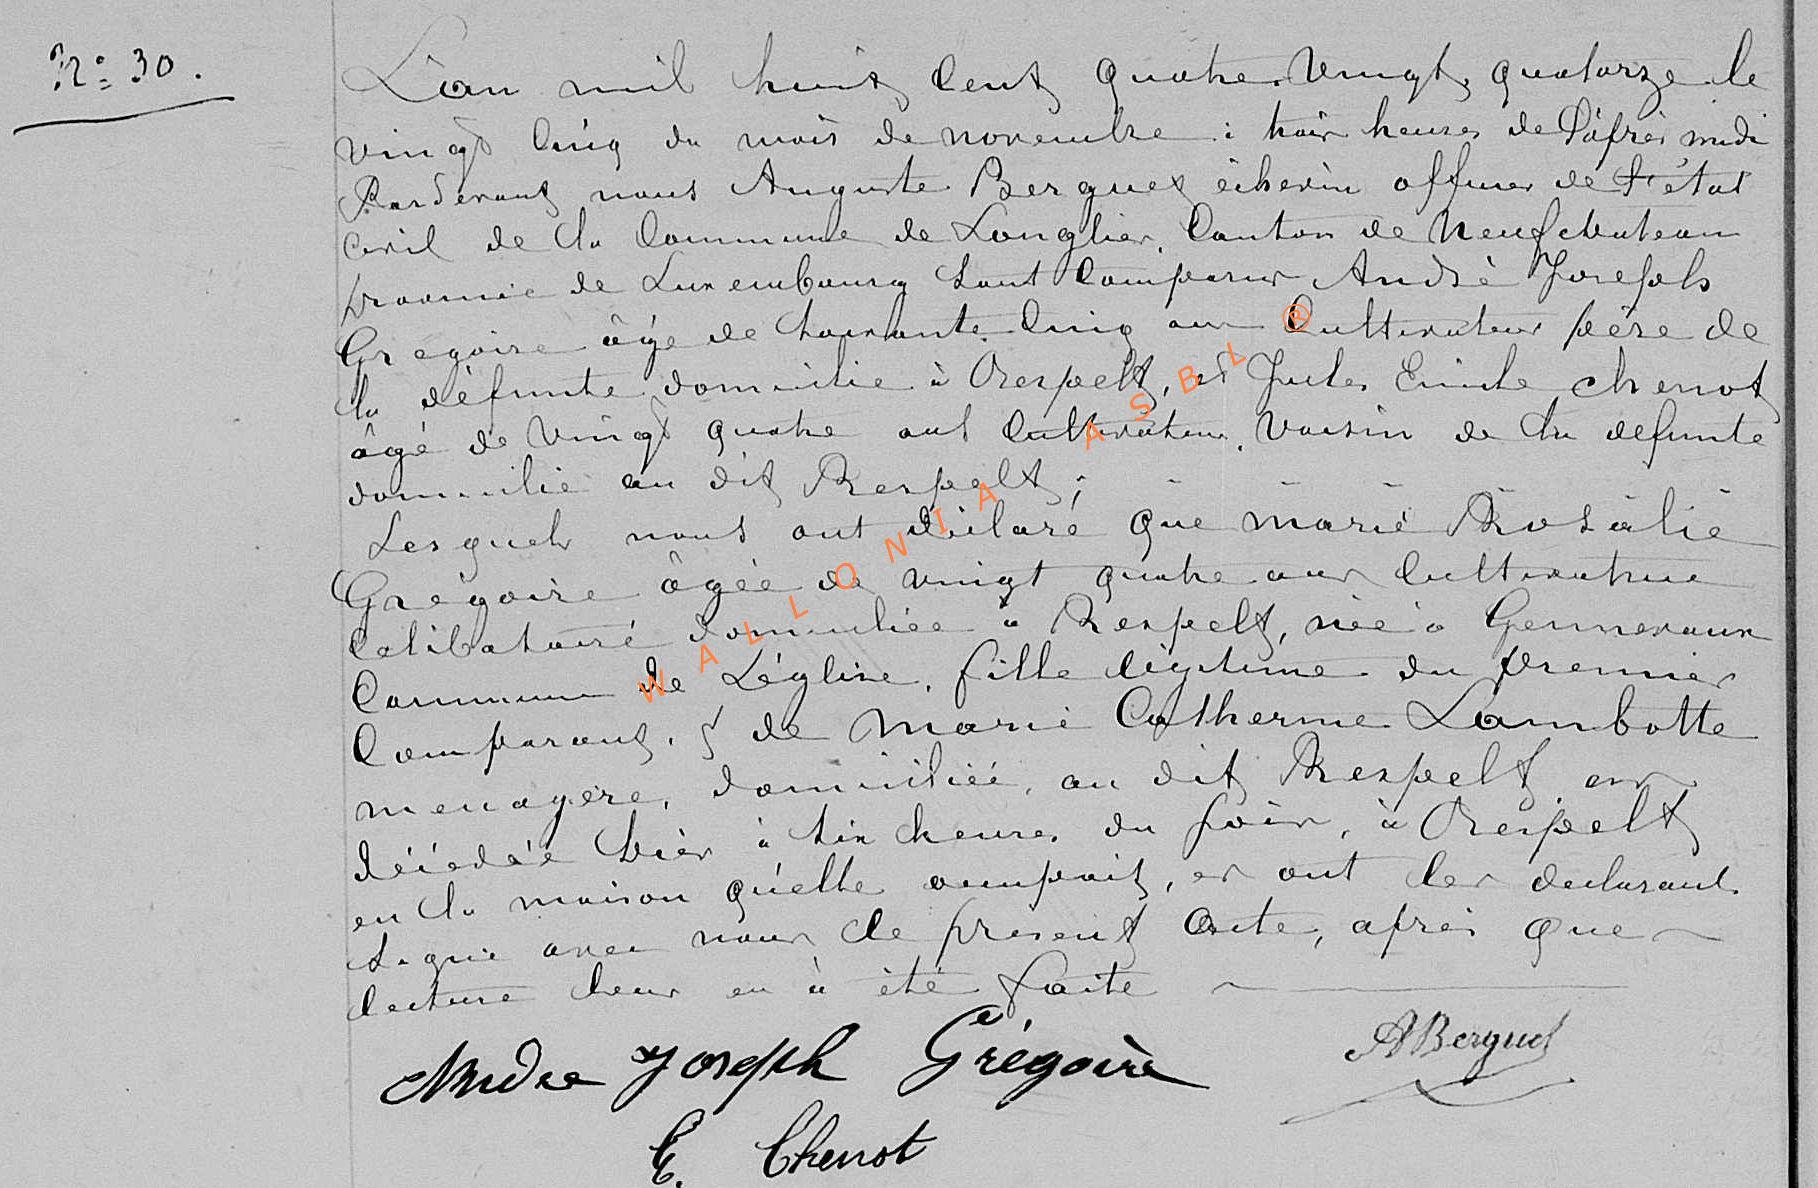 N° 30.
L'an mil huit Cent quatre-Vingt quatorze le
vingt Cinq du mois de novembre à trois heures de l'après midi
Pardevant nous Auguste Berguet échevin officier de l'état
civil de la Commune de Longlier, Canton de Neufchateau
province de Luxembourg sont comparus André Joseph
Grégoire âgé de soixante Cinq ans Cultivateur père de
la défunte domicilié à Respelt, et Jules Emile Chenot
âgé de Vingt quatre ans Cultivateur, voisin de la défunte
domicilié au dit Respelt;
Lesquels nous ont déclaré que marie Rosalie
Grégoire âgée de vingt quatre ans Cultivatrice
Celibataire domiciliée à Respelt, née à Gennevaux
Commune de Léglise, fille légitime du premier
Comparant, & de Marie Catherine Lambotte
menagère, domiciliée, au dit Respelt est
décédée hier à six heures du soir, à Respelt
en la maison qu'elle occupait, et ont les declarants
signé avec nous le présent acte, après que
lecture leur en à été faite
André Joseph Grégoire
ABerguet
E. Chenot
WALLONIA ASBL ®